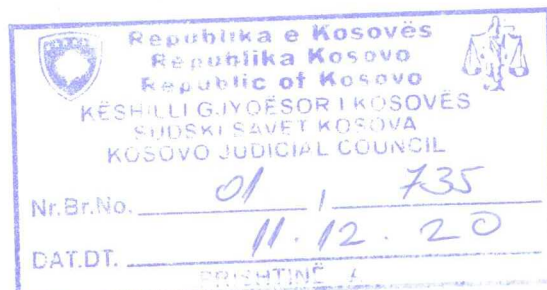 Republika e Kosovës
Republika Kosovo
Republic of Kosovo
KËSHILLI GJYQËSOR I KOSOVËS
SUDSKI SAVET KOSOVA
KOSOVO JUDICIAL COUNCIL
Nr.Br.No. 01 / 735
DAT.DT. 11.12.20
PRISHTINË